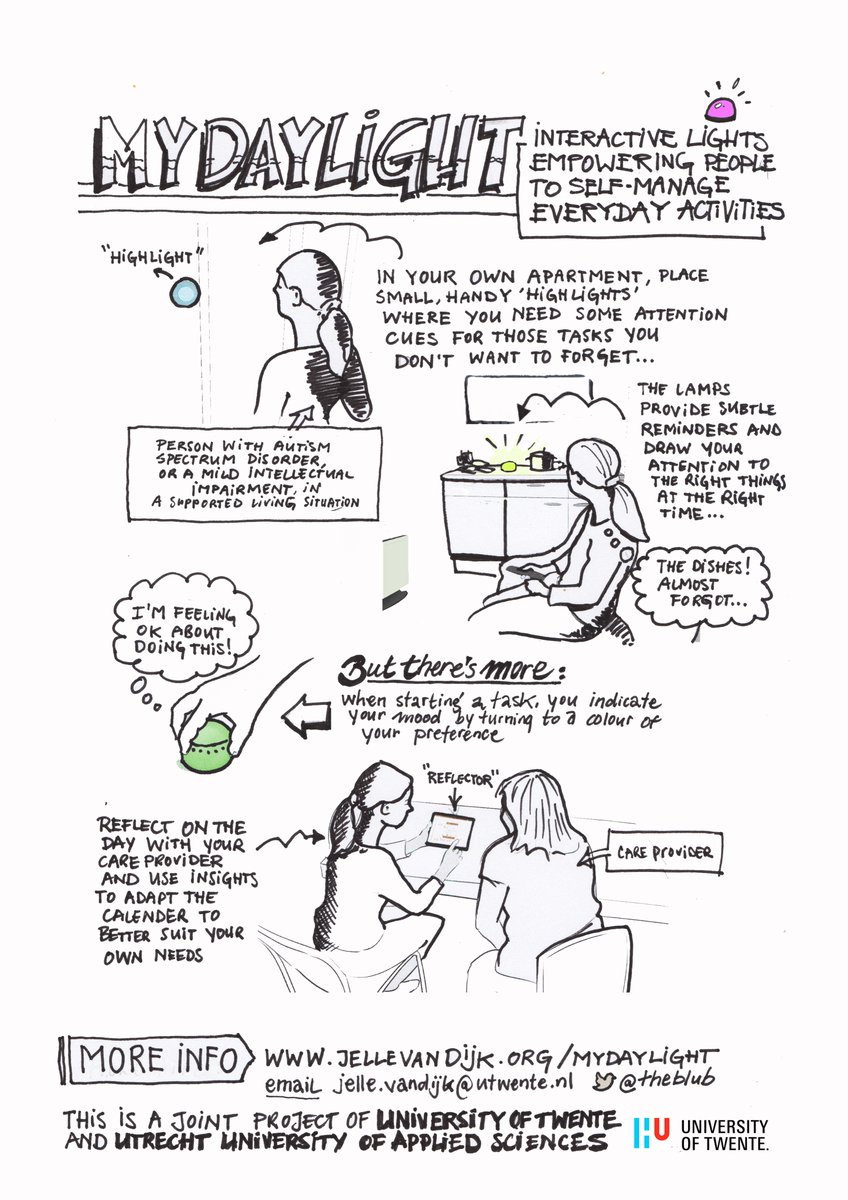 MYDAYLIGHT
INTERACTIVE LIGHTS
EMPOWERING PEOPLE
TO SELF-MANAGE
EVERYDAY ACTIVITIES
"HIGHLIGHT"
IN YOUR OWN APARTMENT, PLACE
SMALL, HANDY 'HIGHLIGHTS'
WHERE YOU NEED SOME ATTENTION
CUES FOR THOSE TASKS YOU
DON'T WANT TO FORGET...
PERSON WITH AUTISM
SPECTRUM DISORDER,
OR A MILD INTELLECTUAL
IMPAIRMENT, IN
A SUPPORTED LIVING SITUATION
THE LAMPS
PROVIDE SUBTLE
REMINDERS AND
DRAW YOUR
ATTENTION TO
THE RIGHT THINGS
AT THE RIGHT
TIME...
THE DISHES!
ALMOST
FORGOT...
I'M FEELING
OK ABOUT
DOING THIS!
But there's more:
When starting a task, you indicate
your mood by turning to a colour of
your preference
"REFLECTOR"
REFLECT ON THE
DAY WITH YOUR
CARE PROVIDER
AND USE INSIGHTS
TO ADAPT THE
CALENDER TO
BETTER SUIT YOUR
OWN NEEDS
CARE PROVIDER
MORE INFO
WWW.JELLEVANDIJK.ORG/MYDAYLIGHT
email jelle.vandijk@utwente.nl @theblub
THIS IS A JOINT PROJECT OF UNIVERSITY OF TWENTE
AND UTRECHT UNIVERSITY OF APPLIED SCIENCES
HU
UNIVERSITY
OF TWENTE.